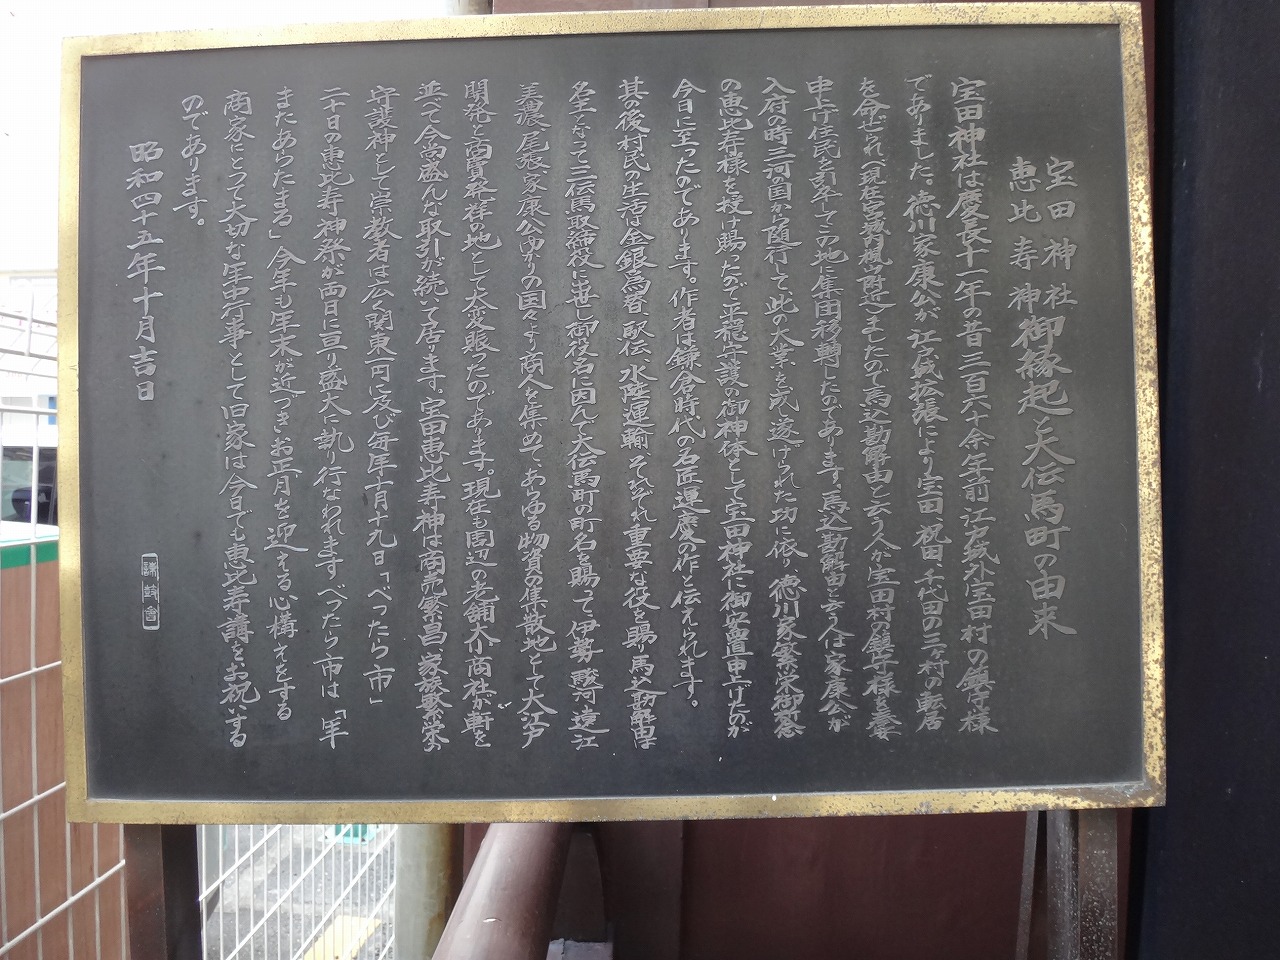 宝田神社
恵比寿神
御縁起と大伝馬町の由来
宝田神社は慶長十一年の昔三百六十余年前江戸城外宝田村の鎮守様
でありました。徳川家康公が江戸城拡張により宝田、祝田、千代田の三ヶ村の転居
を命ぜられ(現在宮城内楓山附近)ましたので馬込勘解由と云う人が宝田村の鎮守様を奉
申上げ住民を引率してこの地に集団移轉したのであります。馬込勘解由と云う人は家康公が
入府の時三河の国から随行して、此の大業を成し遂げられた功に依り徳川家繁栄御祈念
の恵比寿様を授け賜ったので平穏守護の御神体として宝田神社に御安置申上げたのが
今日に至ったのであります。作者は鎌倉時代の名匠運慶の作と伝えられます。
其の後村民の生活は金銀為替、駅伝、水陸運輸、それぞれ重要な役を賜り馬込勘解由は
名主となって三伝馬取締役に出世し御役名に因んで大伝馬町の町名を賜って伊勢、駿河、遠江
美濃、尾張、家康公ゆかりの国々より商人を集めて、あらゆる物資の集散地として大江戸
開発と商賣発祥の地として大変賑ったのであります。現在も周辺の老舗大小商社が軒を
並べて今尚盛んな取引が続いて居ます。宝田恵比寿神は商売繁昌、家族繁栄の
守護神として崇敬者は広く関東一円に及び毎年十月十九日「べったら市」
二十日の恵比寿神祭が両日に亘り盛大に執り行なわれますべったら市は「年
またあらたまる」今年も年末が近づきお正月を迎える心構えをする
商家にとって大切な年中行事として旧家は今日でも恵比寿講をお祝いする
のであります。
昭和四十五年十月吉日